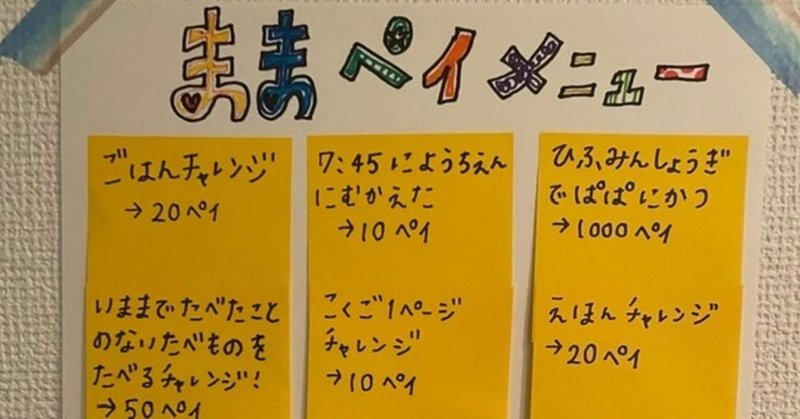 ままペイメニュー
ごはんチャレンジ
→20ペイ
7:45にようちえん
にむかえた
→10ペイ
ひふみんしょうぎ
でぱぱにかつ
→1000ペイ
いままでたべたこと
のないたべものを
たべるチャレンジ!
→50ペイ
こくご1ページ
チャレンジ
→10ペイ
えほんチャレンジ
→20ペイ